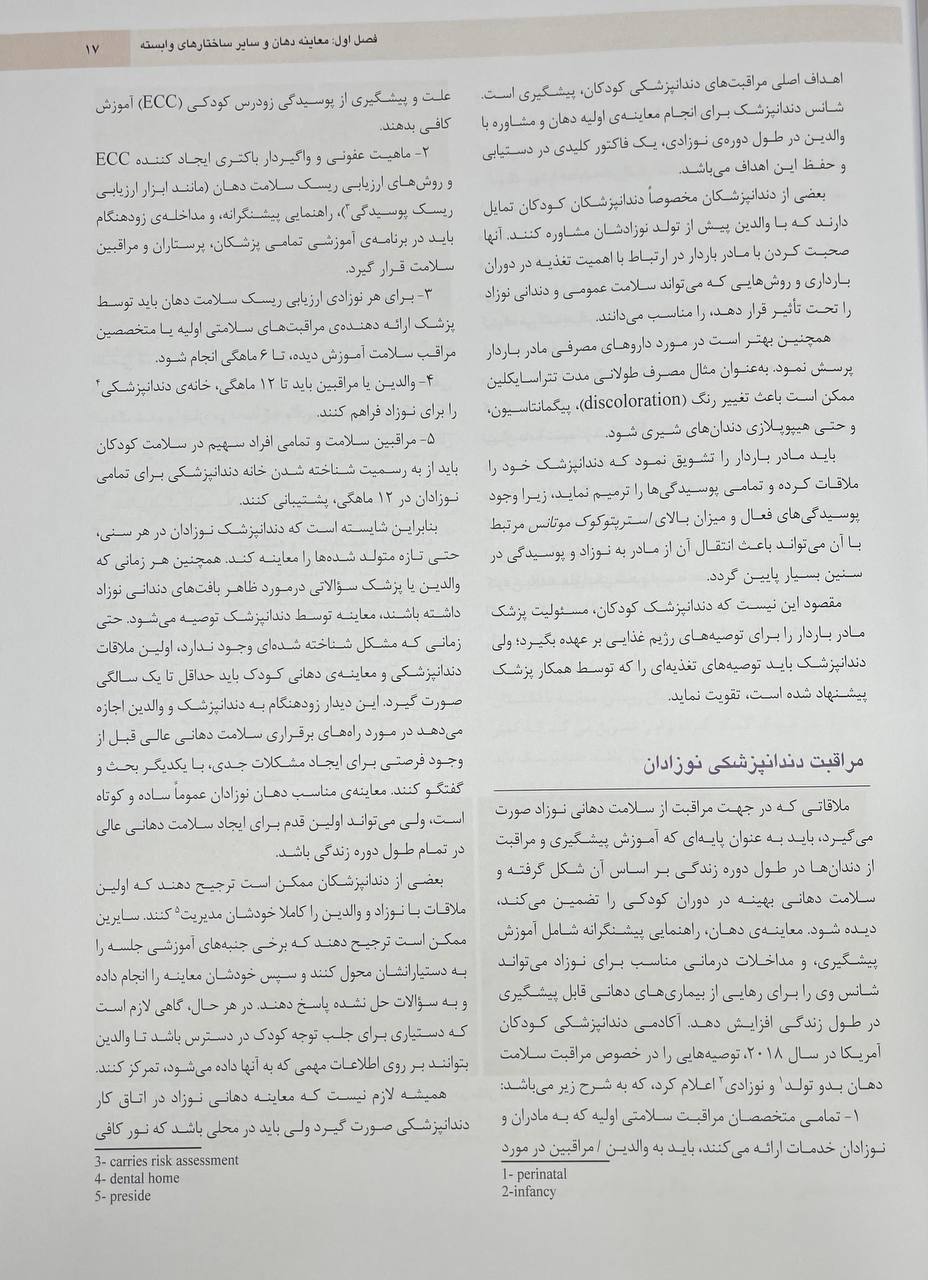 فصل اول: معاینه دهان و سایر ساختارهای وابسته
۱۷
اهداف اصلی مراقبت‌های دندانپزشکی کودکان، پیشگیری است.
شانس دندانپزشک برای انجام معاینه‌ی اولیه دهان و مشاوره با
والدین در طول دوره‌ی نوزادی، یک فاکتور کلیدی در دستیابی
و حفظ این اهداف می‌باشد.
بعضی از دندانپزشکان مخصوصاً دندانپزشکان کودکان تمایل
دارند که با والدین پیش از تولد نوزادشان مشاوره کنند. آنها
صحبت کردن با مادر باردار در ارتباط با اهمیت تغذیه در دوران
بارداری و روش‌هایی که می‌تواند سلامت عمومی و دندانی نوزاد
را تحت تأثیر قرار دهد، را مناسب می‌دانند.
همچنین بهتر است در مورد داروهای مصرفی مادر باردار
پرسش نمود. به‌عنوان مثال مصرف طولانی مدت تتراسایکلین
ممکن است باعث تغییر رنگ (discoloration)، پیگمانتاسیون،
و حتی هیپوپلازی دندان‌های شیری شود.
باید مادر باردار را تشویق نمود که دندانپزشک خود را
ملاقات کرده و تمامی پوسیدگی‌ها را ترمیم نماید، زیرا وجود
پوسیدگی‌های فعال و میزان بالای استرپتوکوک موتانس مرتبط
با آن می‌تواند باعث انتقال آن از مادر به نوزاد و پوسیدگی در
سنین بسیار پایین گردد.
مقصود این نیست که دندانپزشک کودکان، مسئولیت پزشک
مادر باردار را برای توصیه‌های رژیم غذایی بر عهده بگیرد؛ ولی
دندانپزشک باید توصیه‌های تغذیه‌ای را که توسط همکار پزشک
پیشنهاد شده است، تقویت نماید.
مراقبت دندانپزشکی نوزادان
ملاقاتی که در جهت مراقبت از سلامت دهانی نوزاد صورت
می‌گیرد، باید به عنوان پایه‌ای که آموزش پیشگیری و مراقبت
از دندان‌ها در طول دوره زندگی بر اساس آن شکل گرفته و
سلامت دهانی بهینه در دوران کودکی را تضمین می‌کند،
دیده شود. معاینه‌ی دهان، راهنمایی پیشنگرانه شامل آموزش
پیشگیری، و مداخلات درمانی مناسب برای نوزاد می‌تواند
شانس وی را برای رهایی از بیماری‌های دهانی قابل پیشگیری
در طول زندگی افزایش دهد. آکادمی دندانپزشکی کودکان
آمریکا در سال ۲۰۱۸، توصیه‌هایی را در خصوص مراقبت سلامت
دهان بدو تولد۱ و نوزادی۲ اعلام کرد، که به شرح زیر می‌باشد:
۱- تمامی متخصصان مراقبت سلامتی اولیه که به مادران و
نوزادان خدمات ارائه می‌کنند، باید به والدین / مراقبین در مورد
1- perinatal
2-infancy
علت و پیشگیری از پوسیدگی زودرس کودکی (ECC) آموزش
کافی بدهند.
۲- ماهیت عفونی و واگیردار باکتری ایجاد کننده ECC
و روش‌های ارزیابی ریسک سلامت دهان (مانند ابزار ارزیابی
ریسک پوسیدگی۳)، راهنمایی پیشنگرانه، و مداخله‌ی زودهنگام
باید در برنامه‌ی آموزشی تمامی پزشکان، پرستاران و مراقبین
سلامت قرار گیرد.
۳- برای هر نوزادی ارزیابی ریسک سلامت دهان باید توسط
پزشک ارائه دهنده‌ی مراقبت‌های سلامتی اولیه یا متخصصین
مراقب سلامت آموزش دیده، تا ۶ ماهگی انجام شود.
۴- والدین یا مراقبین باید تا ۱۲ ماهگی، خانه‌ی دندانپزشکی۴
را برای نوزاد فراهم کنند.
۵- مراقبین سلامت و تمامی افراد سهیم در سلامت کودکان
باید از به رسمیت شناخته شدن خانه دندانپزشکی برای تمامی
نوزادان در ۱۲ ماهگی، پشتیبانی کنند.
بنابراین شایسته است که دندانپزشک نوزادان در هر سنی،
حتی تازه متولد شده‌ها را معاینه کند. همچنین هر زمانی که
والدین یا پزشک سؤالاتی درمورد ظاهر بافت‌های دندانی نوزاد
داشته باشند، معاینه توسط دندانپزشک توصیه می‌شود. حتی
زمانی که مشکل شناخته شده‌ای وجود ندارد، اولین ملاقات
دندانپزشکی و معاینه‌ی دهانی کودک باید حداقل تا یک سالگی
صورت گیرد. این دیدار زودهنگام به دندانپزشک و والدین اجازه
می‌دهد در مورد راه‌های برقراری سلامت دهانی عالی قبل از
وجود فرصتی برای ایجاد مشکلات جدی، با یکدیگر بحث و
گفتگو کنند. معاینه‌ی مناسب دهان نوزادان عموماً ساده و کوتاه
است، ولی می‌تواند اولین قدم برای ایجاد سلامت دهانی عالی
در تمام طول دوره زندگی باشد.
بعضی از دندانپزشکان ممکن است ترجیح دهند که اولین
ملاقات با نوزاد و والدین را کاملا خودشان مدیریت۵ کنند. سایرین
ممکن است ترجیح دهند که برخی جنبه‌های آموزشی جلسه را
به دستیارانشان محول کنند و سپس خودشان معاینه را انجام داده
و به سؤالات حل نشده پاسخ دهند. در هر حال، گاهی لازم است
که دستیاری برای جلب توجه کودک در دسترس باشد تا والدین
بتوانند بر روی اطلاعات مهمی که به آنها داده می‌شود، تمرکز کنند.
همیشه لازم نیست که معاینه دهانی نوزاد در اتاق کار
دندانپزشکی صورت گیرد ولی باید در محلی باشد که نور کافی
3- carries risk assessment
4- dental home
5- preside